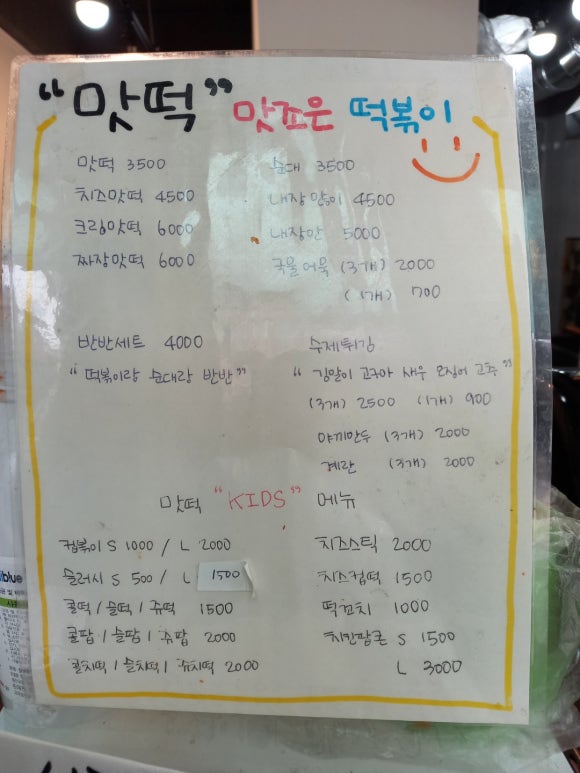 “맛떡” 맛죠은 떡볶이
맛떡 3500
치즈맛떡 4500
크림맛떡 6000
짜장맛떡 6000
순대 3500
내장많이 4500
내장만 5000
국물어묵 (3개) 2000
(1개) 700
반반세트 4000
“떡볶이랑 순대랑 반반”
수제튀김
“김말이 고구마 새우 오징어 고추”
(3개) 2500 (1개) 900
야끼만두 (3개) 2000
계란 (3개) 2000
맛떡 “KIDS” 메뉴
컵볶이 S 1000 / L 2000
슬러시 S 500 / L 1500
콜떡 / 슬떡 / 쥬떡 1500
콜팝 / 슬팝 / 쥬팝 2000
콜치떡 / 슬치떡 / 쥬치떡 2000
치즈스틱 2000
치즈컵떡 1500
떡꼬치 1000
치킨팝콘 S 1500
L 3000
blue